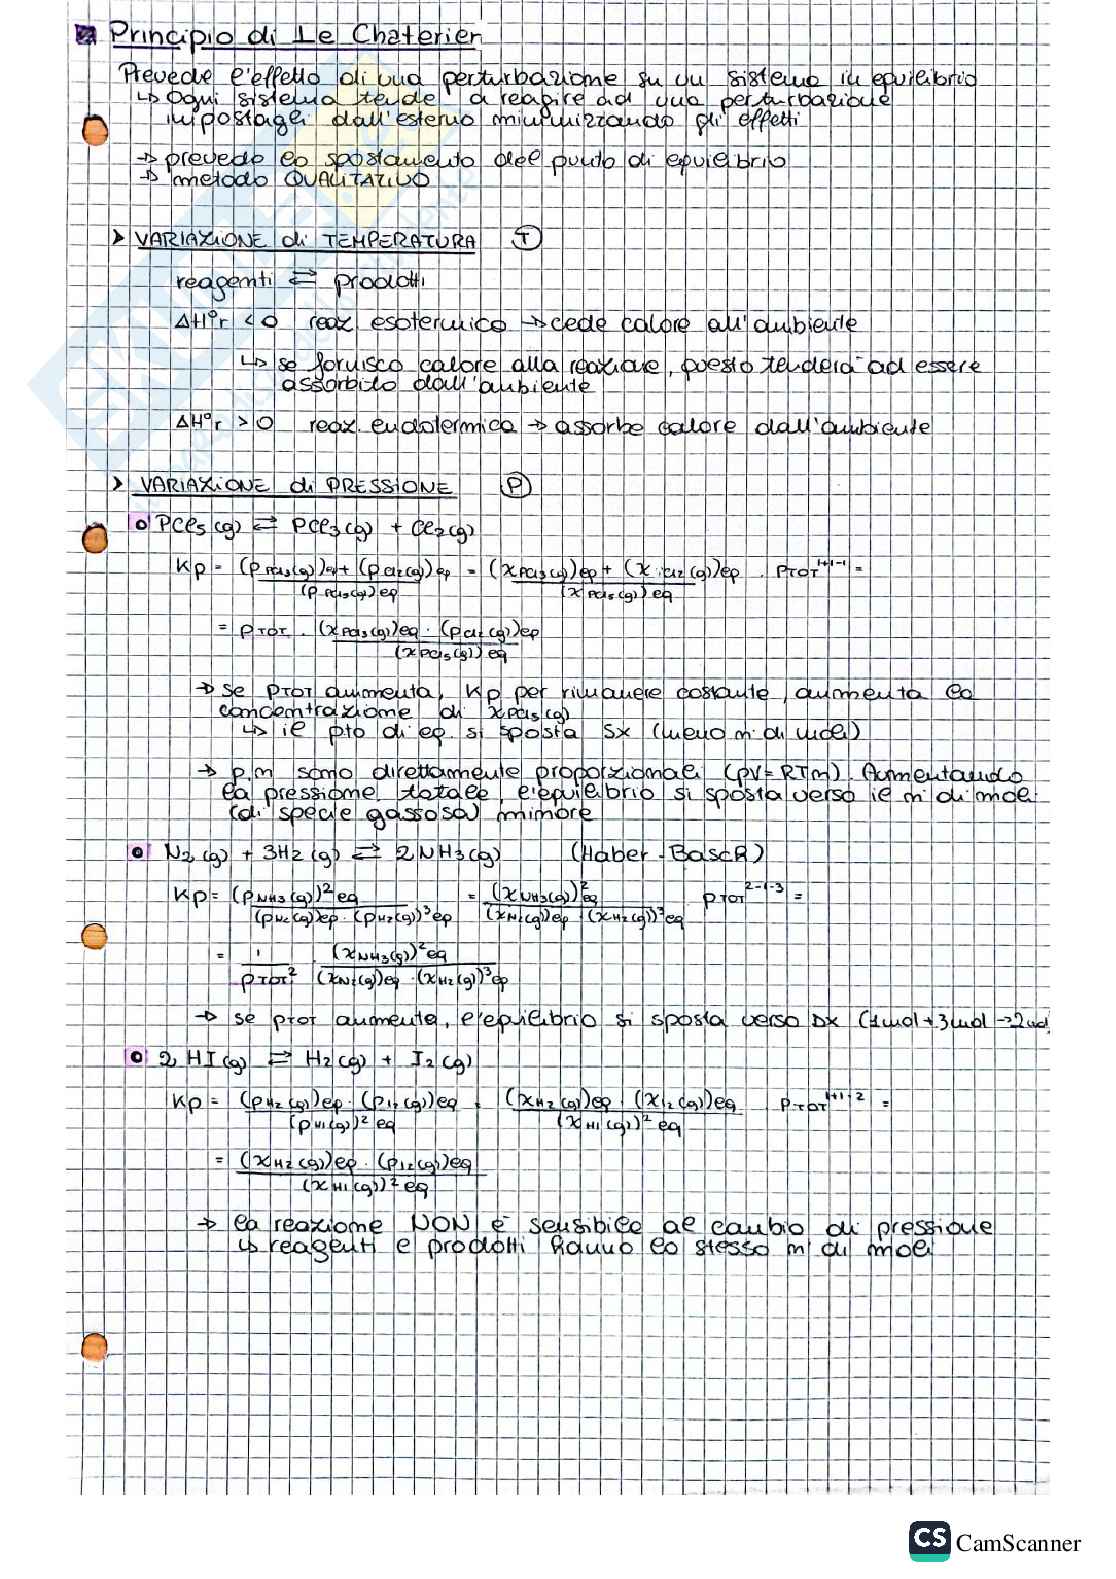 Principio di Le Chaterier
Prevede l'effetto di una perturbazione su un sistema in equilibrio
↳ Ogni sistema tende a reagire ad una perturbazione
impostagli dall'esterno minimizzando gli effetti
→ prevedo lo spostamento del punto di equilibrio
→ metodo QUALITATIVO
> VARIAZIONE di TEMPERATURA (T)
reagenti ⇄ prodotti
ΔH°r < 0 reaz. esotermico → cede calore all'ambiente
↳ se fornisco calore alla reazione, questo tenderà ad essere
assorbito dall'ambiente
ΔH°r > 0 reaz. endotermica → assorbe calore dall'ambiente
> VARIAZIONE di PRESSIONE (P)
PCl5(g) ⇄ PCl3(g) + Cl2(g)
Kp = (pPCl3(g))eq + (pCl2(g))eq / (pPCl5(g))eq = (xPCl3(g))eq + (xCl2(g))eq / (xPCl5(g))eq · pTOT^1+1-1 =
= pTOT · (xPCl3(g))eq · (pCl2(g))eq / (xPCl5(g))eq
→ se pTOT aumenta, Kp per rimanere costante, aumenta la
concentrazione di xPCl5(g)
↳ il pto di eq. si sposta sx (meno n° di moli)
→ p,n sono direttamente proporzionali (pV=RTn). Aumentando
la pressione totale, l'equilibrio si sposta verso il n° di moli
(di specie gassosa) minore
N2(g) + 3H2(g) ⇄ 2NH3(g) (Haber-Bosch)
Kp = (pNH3(g))²eq / (pN2(g))eq · (pH2(g))³eq = (xNH3(g))²eq / (xN2(g))eq · (xH2(g))³eq · pTOT^2-1-3 =
= 1 / pTOT² · (xNH3(g))²eq / (xN2(g))eq · (xH2(g))³eq
→ se pTOT aumenta, l'equilibrio si sposta verso Dx (1mol+3mol→2mol
2 HI(g) ⇄ H2(g) + I2(g)
Kp = (pH2(g))eq · (pI2(g))eq / (pHI(g))²eq = (xH2(g))eq · (xI2(g))eq / (xHI(g))²eq · pTOT^1+1-2 =
= (xH2(g))eq · (pI2(g))eq / (xHI(g))²eq
→ la reazione NON è sensibile al cambio di pressione
↳ reagenti e prodotti hanno lo stesso n° di moli
CS CamScanner